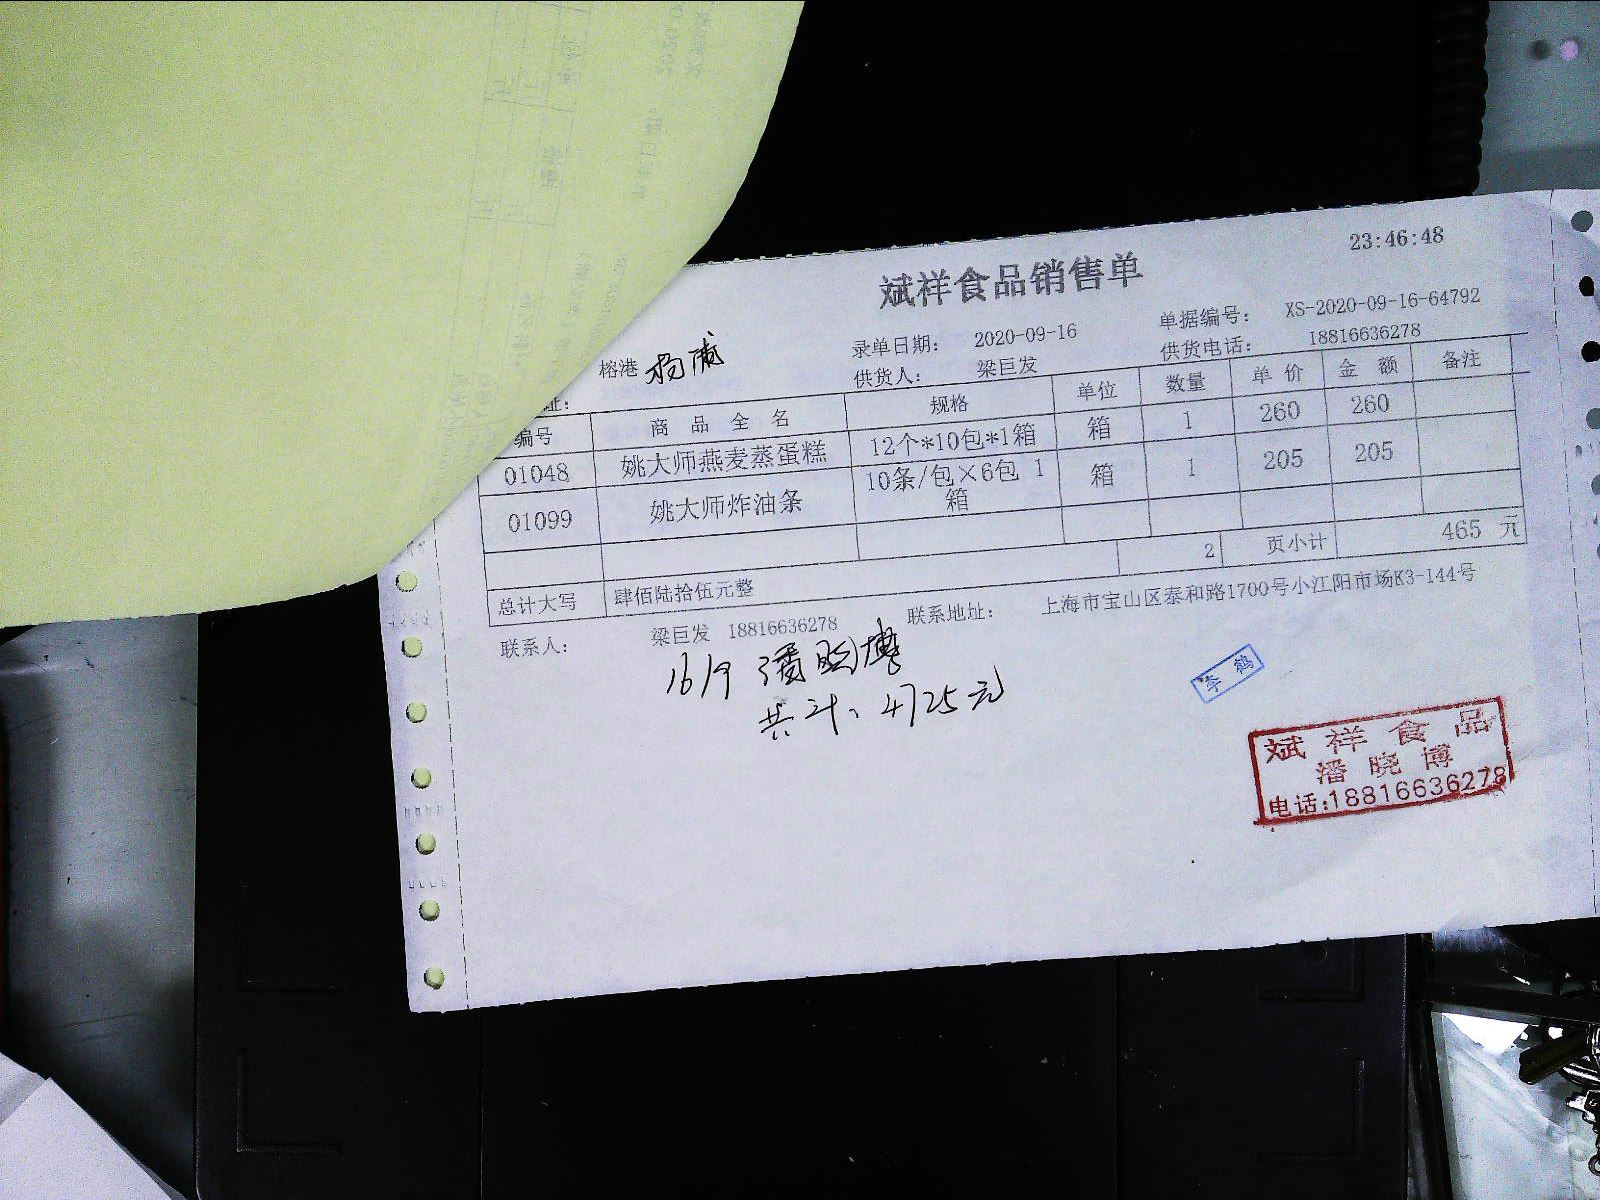 23:46:48
斌祥食品销售单
录单日期： 2020-09-16 单据编号： XS-2020-09-16-64792
榕港 供货人： 梁巨发 供货电话： 18816636278
址：
编号 商 品 全 名 规格 单位 数量 单 价 金 额 备注
01048 姚大师燕麦蒸蛋糕 12个*10包*1箱 箱 1 260 260
01099 姚大师炸油条 10条/包×6包 1箱 箱 1 205 205
2 页小计 465 元
总计大写 肆佰陆拾伍元整
联系人： 梁巨发 18816636278 联系地址： 上海市宝山区泰和路1700号小江阳市场K3-144号
16/9 潘晓博
共计、4725元
李鹤
斌祥食品
潘晓博
电话:18816636278